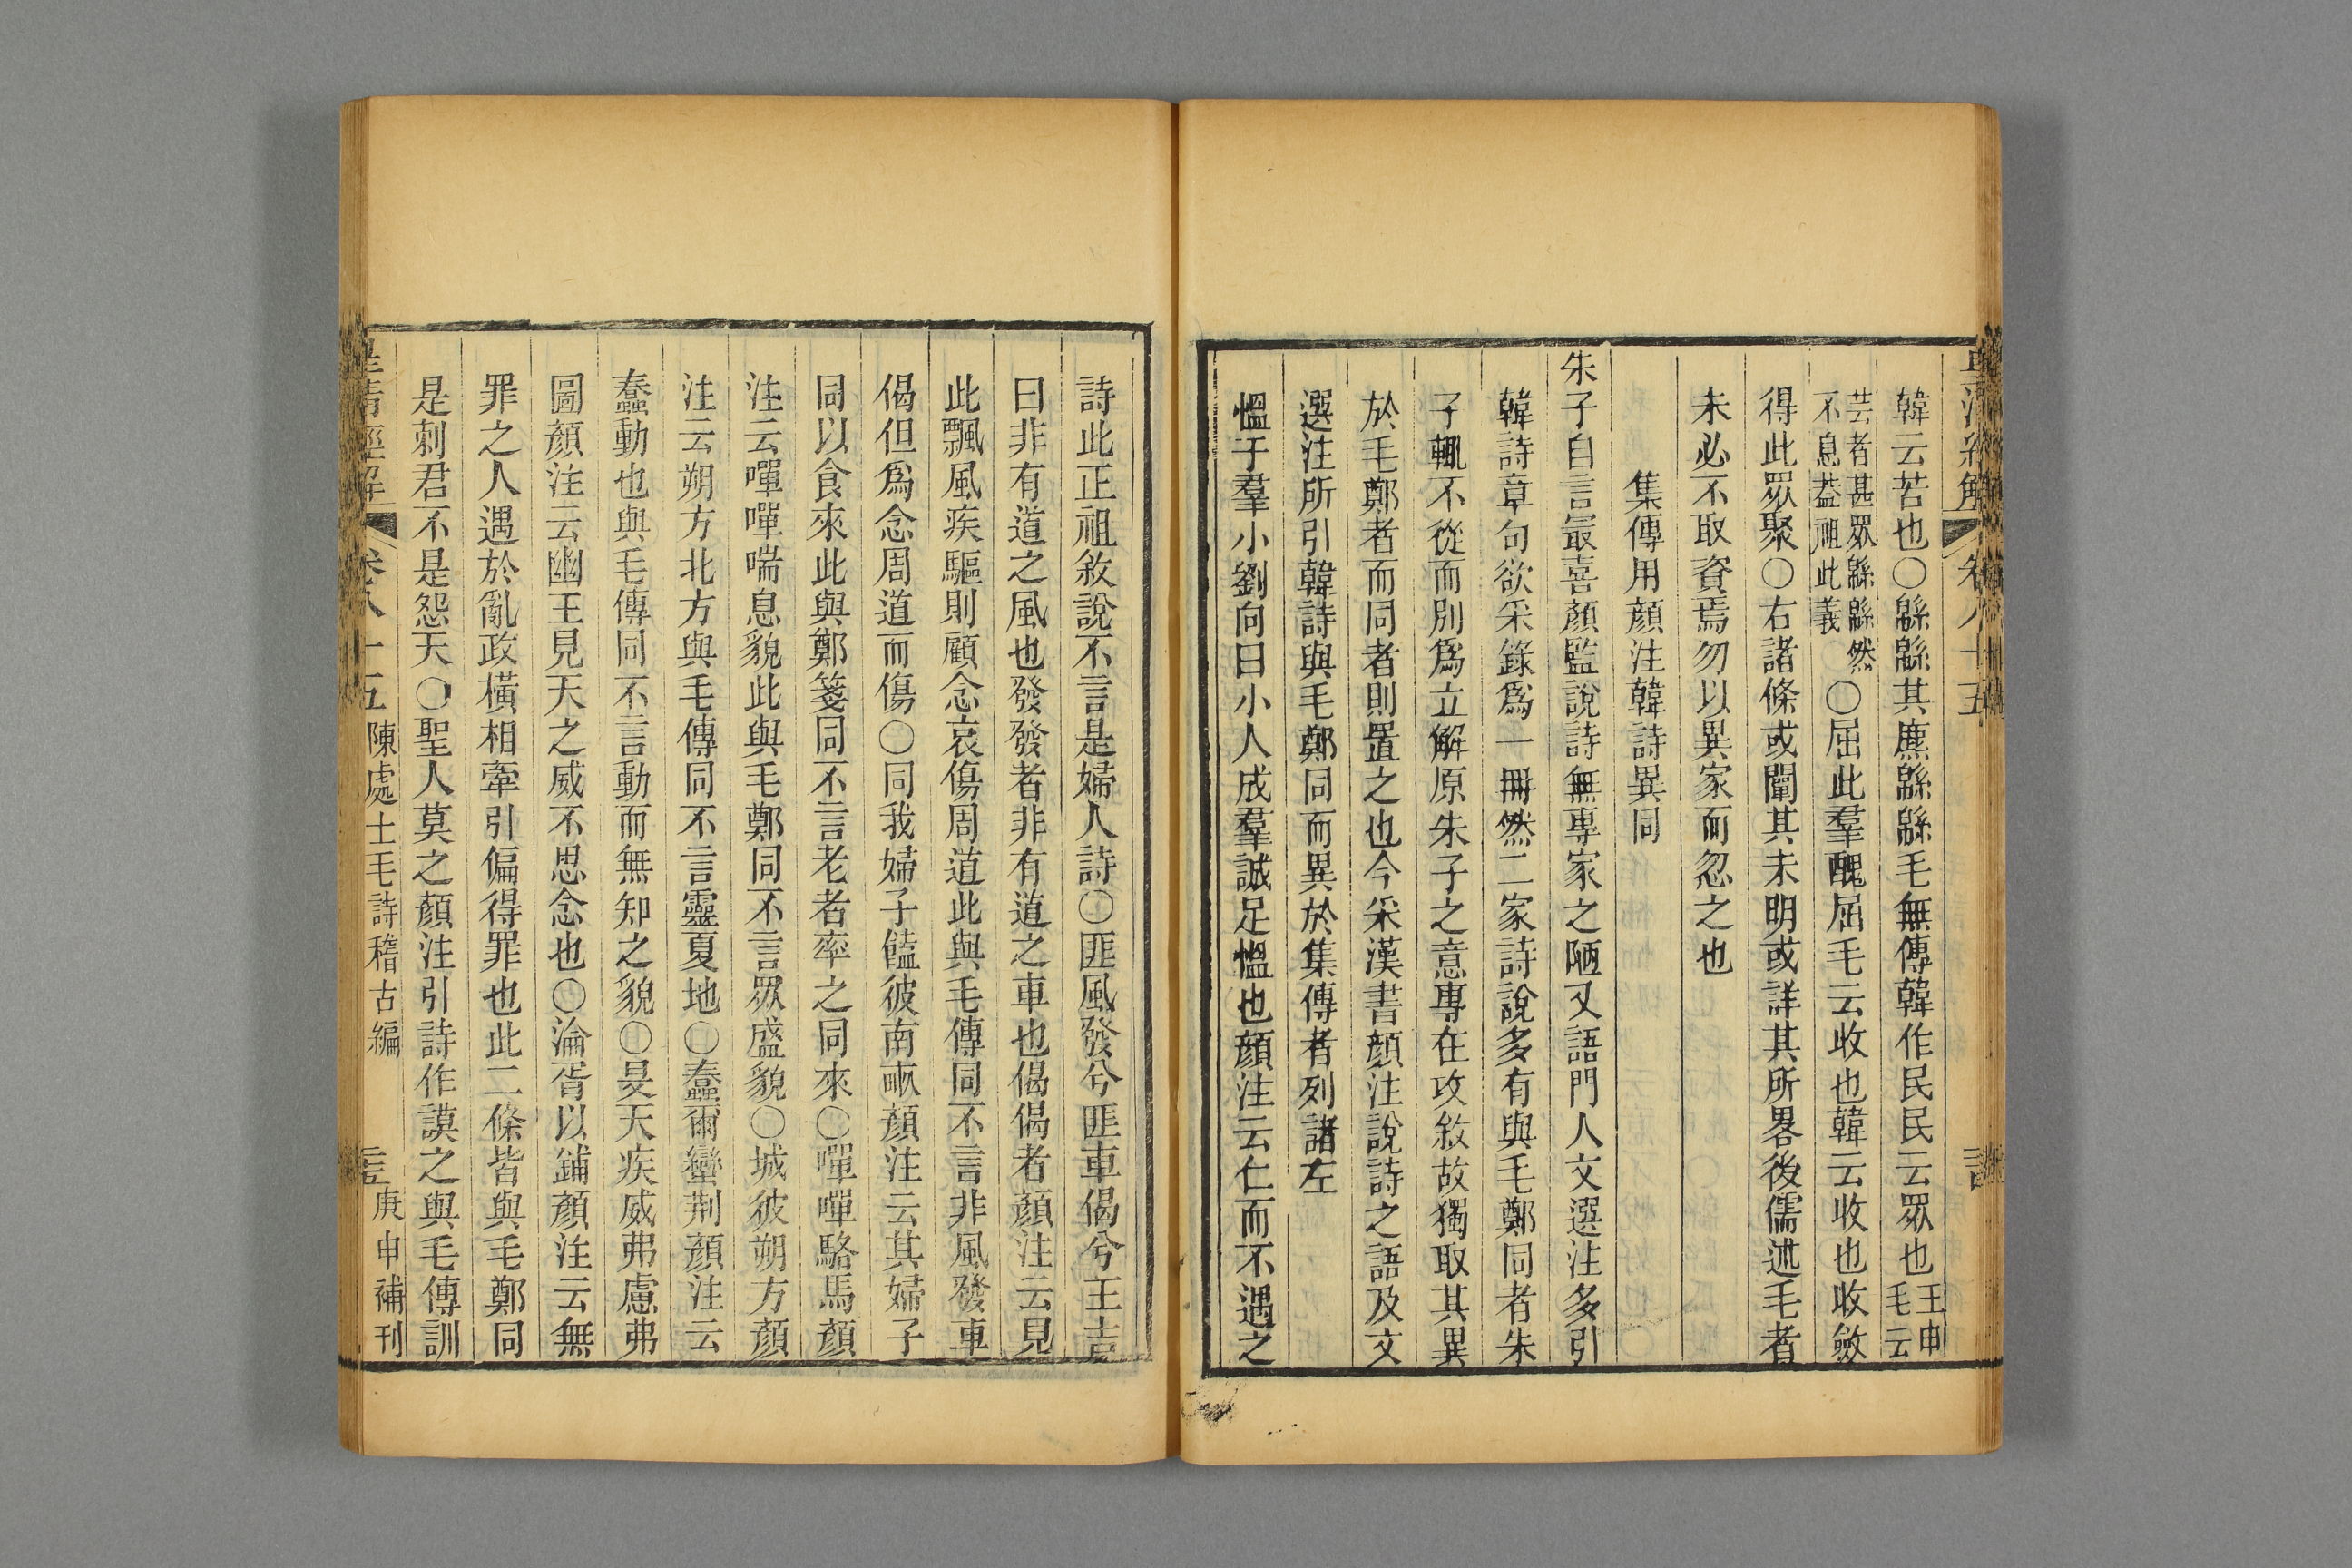 皇清經解 卷八十五
韓云苦也○緜緜其麃緜緜毛無傳韓作民民云眾也王申毛云
芸者甚眾緜緜然不息葢祖此義○屈此羣醜屈毛云收也韓云收也收斂
得此眾聚○右諸條或闡其未明或詳其所畧後儒述毛者
未必不取資焉勿以異家而忽之也
集傳用顏注韓詩異同
朱子自言最喜顏監說詩無專家之陋又語門人文選注多引
韓詩章句欲采錄爲一冊然二家詩說多有與毛鄭同者朱
子輒不從而別爲立解原朱子之意專在攻敘故獨取其異
於毛鄭者而同者則置之也今采漢書顏注說詩之語及文
選注所引韓詩與毛鄭同而異於集傳者列諸左
慍于羣小劉向曰小人成羣誠足慍也顏注云仁而不遇之
詩此正祖敘說不言是婦人詩○匪風發兮匪車偈兮王吉
曰非有道之風也發發者非有道之車也偈偈者顏注云見
此飄風疾驅則顧念哀傷周道此與毛傳同不言非風發車
偈但爲念周道而傷○同我婦子饁彼南畝顏注云其婦子
同以食來此與鄭箋同不言老者率之同來○嘽嘽駱馬顏
注云嘽嘽喘息貌此與毛鄭同不言眾盛貌○城彼朔方顏
注云朔方北方與毛傳同不言靈夏地○蠢爾蠻荆顏注云
蠢動也與毛傳同不言動而無知之貌○旻天疾威弗慮弗
圖顏注云幽王見天之威不思念也○淪胥以鋪顏注云無
罪之人遇於亂政橫相牽引偏得罪也此二條皆與毛鄭同
是刺君不是怨天○聖人莫之顏注引詩作謨之與毛傳訓
皇清經解 卷八十五 陳處士毛詩稽古編 庚申補刊